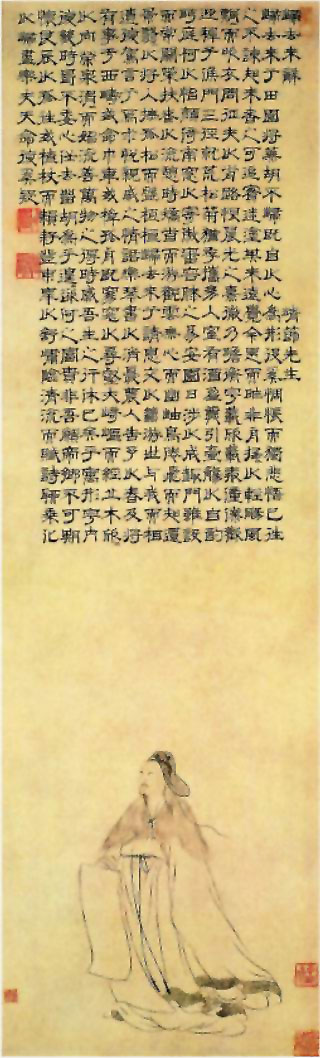 歸去來辭 靖節先生
歸去來兮田園將蕪胡不歸既自以心為形役奚惆悵而獨悲悟已往
之不諫知來者之可追實迷塗其未遠覺今是而昨非舟搖以輕颺風
飄而吹衣問征夫以前路恨晨光之熹微乃瞻衡宇載欣載奔僮僕歡
迎稚子候門三徑就荒松菊猶存攜幼入室有酒盈樽引壺觴以自酌
眄庭柯以怡顏倚南窗以寄傲審容膝之易安園日涉以成趣門雖設
而常關策扶老以流憩時矯首而遐觀雲無心而出岫鳥倦飛而知還
景翳翳以將入撫孤松而盤桓歸去來兮請息交以絕游世與我而相
遺復駕言兮焉求悅親戚之情話樂琴書以消憂農人告予以春及將
有事于西疇或命巾車或棹孤舟既窈窕以尋壑亦崎嶇而經丘木欣欣
以向榮泉涓涓而始流善萬物之得時感吾生之行休已矣乎寓形宇內
復幾時曷不委心任去留胡為乎遑遑欲何之富貴非吾願帝鄉不可期
懷良辰以孤往或植杖而耘耔登東皋以舒嘯臨清流而賦詩聊乘化
以歸盡樂夫天命復奚疑